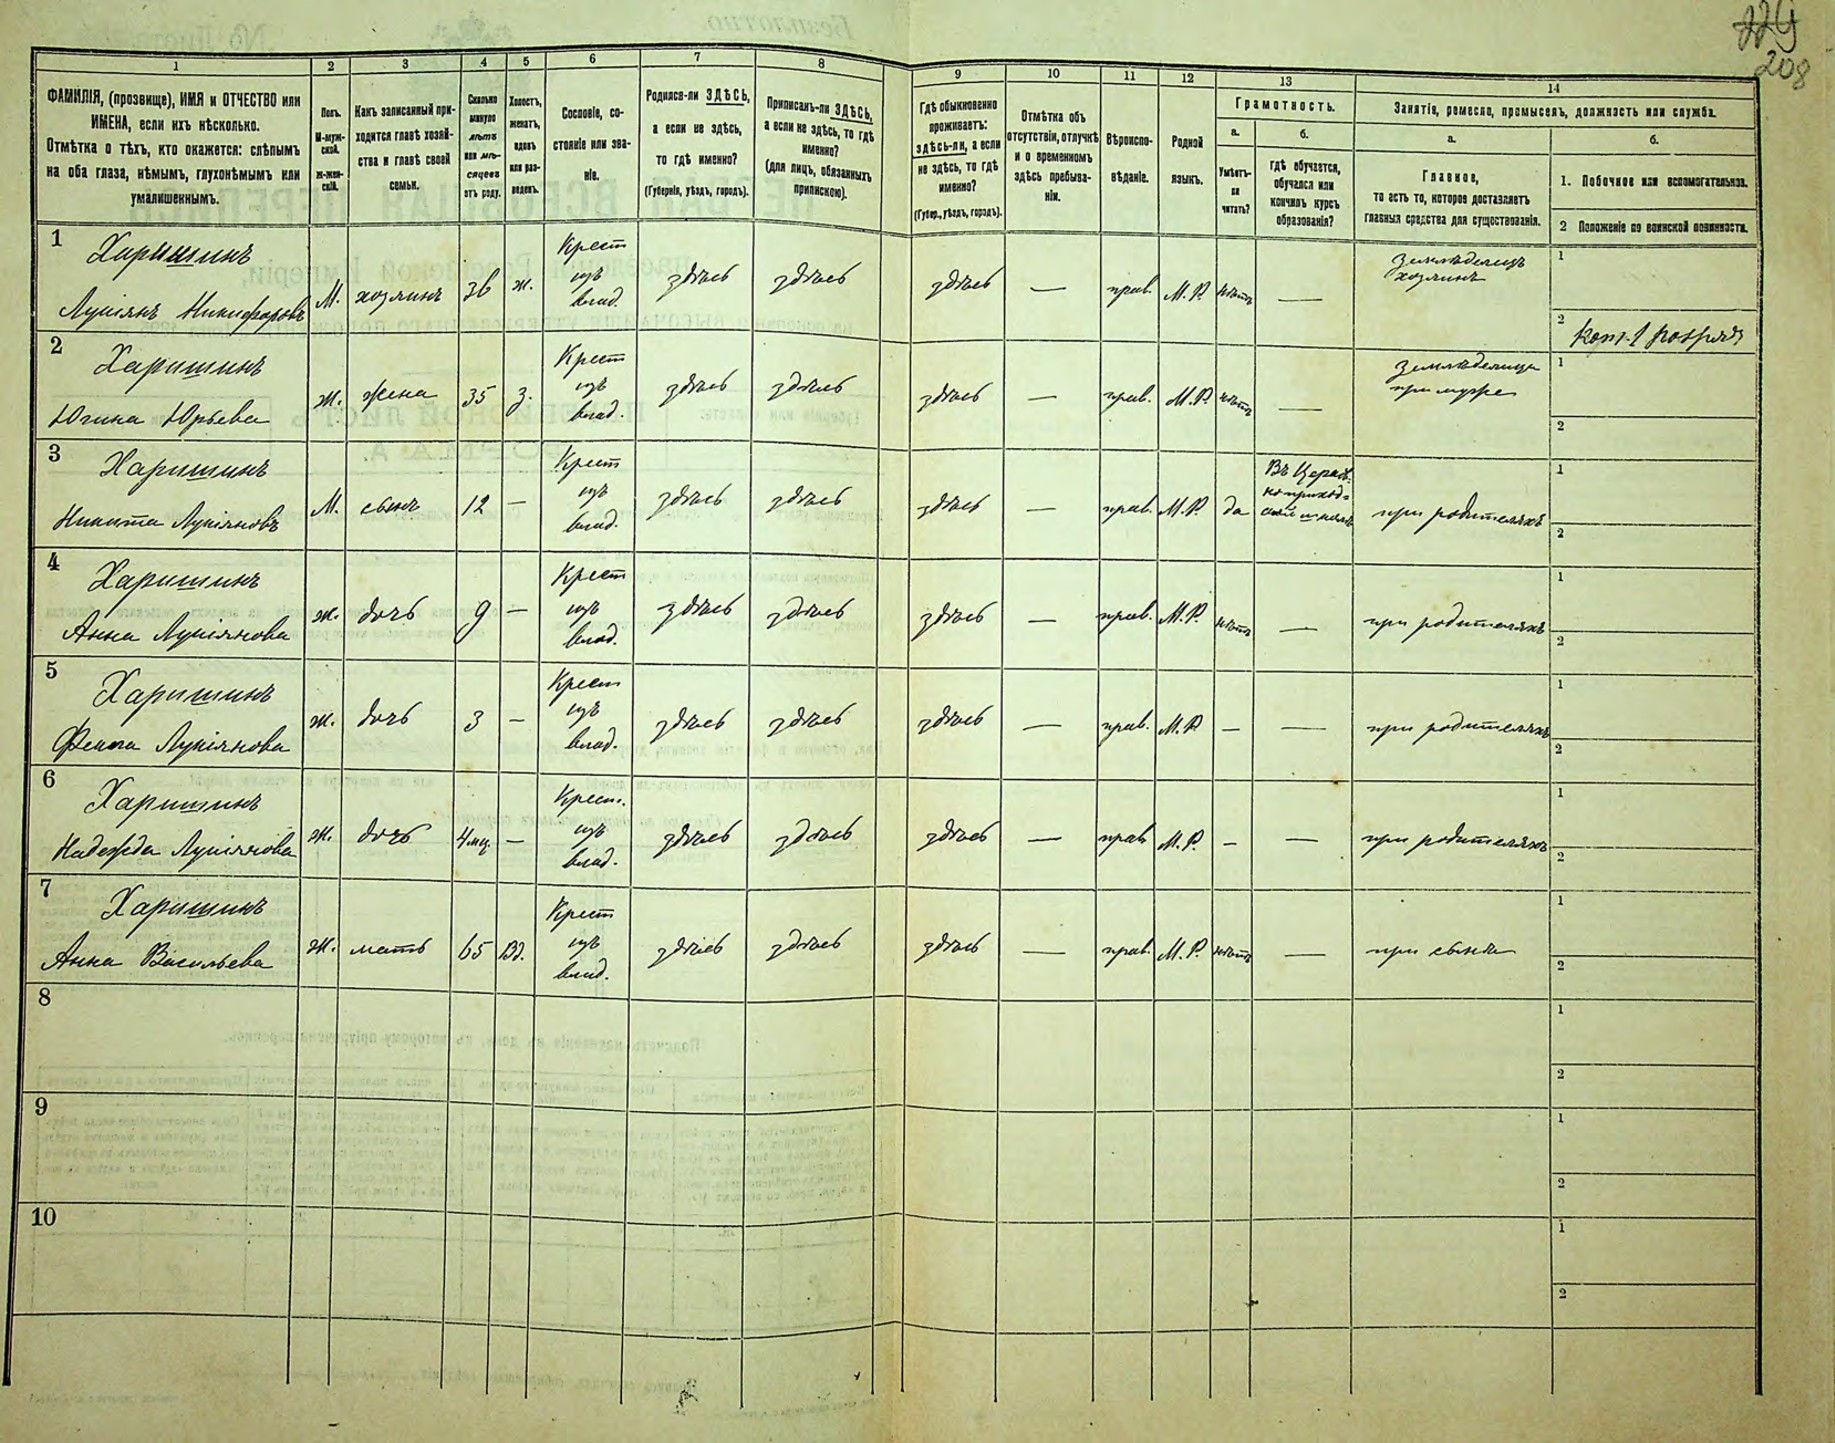 229
208
1
2
3
4
5
6
7
8
9
10
11
12
13
14
ФАМИЛІЯ, (прозвище), ИМЯ и ОТЧЕСТВО или
ИМЕНА, если ихъ нѣсколько.
Отмѣтка о тѣхъ, кто окажется: слѣпымъ
на оба глаза, нѣмымъ, глухонѣмымъ или
умалишеннымъ.
Полъ.
М-муж-
ской.
ж-жен-
скій.
Какъ записанный при-
ходится главѣ хозяй-
ства и главѣ своей
семьи.
Сколько
минуло
лѣтъ
или мѣ-
сяцевъ
отъ роду.
Холостъ,
женатъ,
вдовъ
или раз-
веденъ.
Сословіе, со-
стояніе или зва-
ніе.
Родился-ли ЗДѢСЬ,
а если не здѣсь,
то гдѣ именно?
(Губернія, уѣздъ, городъ).
Приписанъ-ли ЗДѢСЬ,
а если не здѣсь, то гдѣ
именно?
(для лицъ, обязанныхъ
припискою).
Гдѣ обыкновенно
проживаетъ:
здѣсь-ли, а если
не здѣсь, то гдѣ
именно?
(Губер., уѣздъ, городъ).
Отмѣтка объ
отсутствіи, отлучкѣ
и о временномъ
здѣсь пребыва-
ніи.
Вѣроиспо-
вѣданіе.
Родной
языкъ.
Грамотность.
а.
Умѣетъ-
ли
читать?
б.
гдѣ обучается,
обучался или
кончилъ курсъ
образованія?
Занятіе, ремесло, промыселъ, должность или служба.
а.
Главное,
то есть то, которое доставляетъ
главныя средства для существованія.
б.
1. Побочное или вспомогательное.
2 Положеніе по воинской повинности.
1
Харишинъ
Лукіянъ Никифоровъ
М.
хозяинъ
36
ж.
Крест
изъ
влад.
здѣсь
здѣсь
здѣсь
—
прав.
М. Р.
нѣтъ
—
землѣделецъ
хозяинъ
1
2
2
Харишинъ
Югина Юрьева
ж.
жена
35
з.
Крест
изъ
влад.
здѣсь
здѣсь
здѣсь
прав.
М.Р.
нѣтъ
—
землѣделица
при муже
1
2
3
Харишинъ
Никита Лукіяновъ
М.
сынъ
12
—
Крест
изъ
влад.
здѣсь
здѣсь
здѣсь
—
прав.
М.Р.
да
Въ Церков.
но приход=
ской школѣ
при родителяхъ
1
2
4
Харишинъ
Анна Лукіянова
ж.
дочь
9
—
Крест
изъ
влад.
здѣсь
здѣсь
здѣсь
—
прав.
М.Р.
нѣтъ
—
при родителяхъ
1
2
5
Харишинъ
Фекла Лукіянова
ж.
дочь
3
—
Крест
изъ
влад.
здѣсь
здѣсь
здѣсь
—
прав.
М.Р.
—
—
при родителяхъ
1
2
6
Харишинъ
Надежда Лукіянова
ж.
дочь
4 мц.
—
Крест.
изъ
влад.
здѣсь
здѣсь
здѣсь
—
прав
М.Р.
—
—
при родителяхъ
1
2
7
Харишинъ
Анна Васильева
ж.
мать
65
Вд.
Крест
изъ
влад.
здѣсь
здѣсь
здѣсь
—
прав.
М.Р.
нѣтъ
—
при сынѣ
1
2
8
1
2
9
1
2
10
1
2